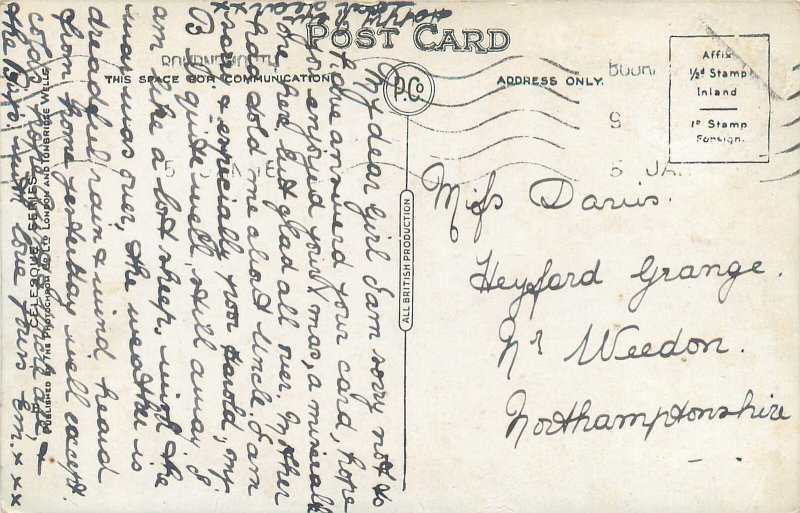 POST CARD
THIS SPACE FOR COMMUNICATION
ADDRESS ONLY.
P.Co
Affix
½d Stamp
Inland
1d Stamp
Foreign.
BOURNEMOUTH
BOUR
9
5 JAN
ALL BRITISH PRODUCTION
"CELESQUE" SERIES
PUBLISHED BY THE PHOTOCHROM CO. LTD LONDON AND TUNBRIDGE WELLS.
Miss Davis.
Heyford Grange.
Nr Weedon.
Northamptonshire
My dear Girl I am sorry not to
have answerd your card, hope
you enjoyed your Xmas, a miserable
one here, but glad all over. Mother
had told me about Uncle. I am
sorry & especially poor Harold, my
B. is quite well, still away. I
am like a lost sheep. wish the
war was over, the weather is
dreadful, rain & wind, heard
from home yesterday well except
colds,
the Buxs with love yours Em. x x x